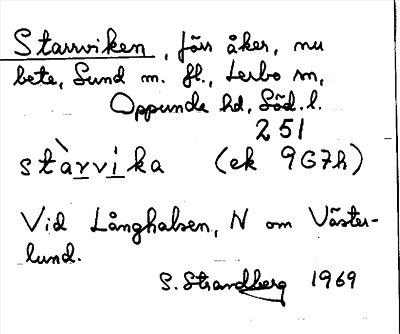 Starrviken, förr åker, nu
bete, Sund m. fl., Lerbo sn,
Oppunda hd, Söd. l.
251
stàrvika (ek 9G7h)
Vid Långhalsen, N om Väster-
lund.
S. Strandberg 1969